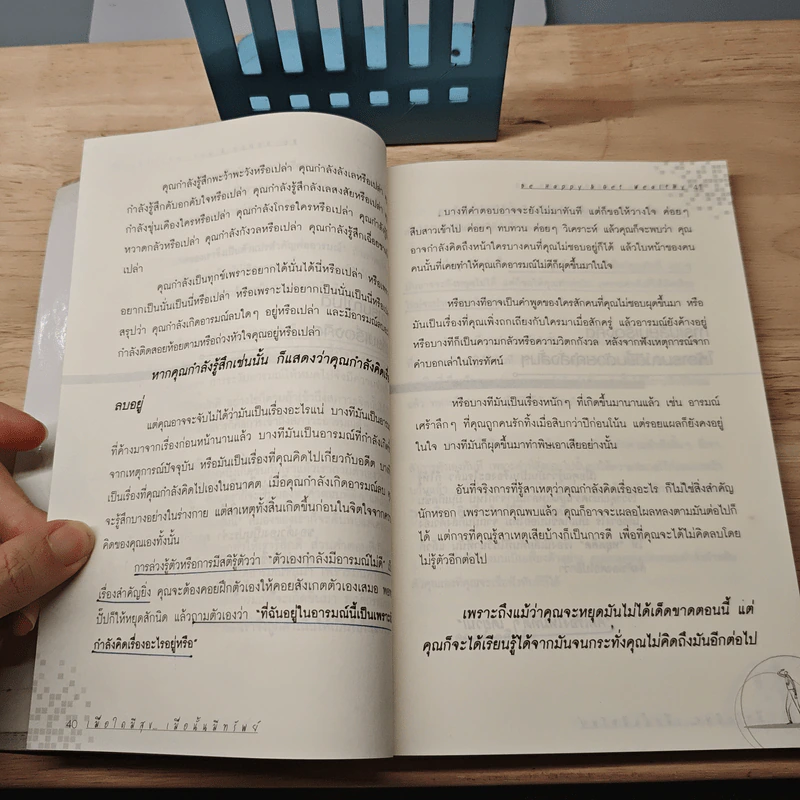 คุณกำลังรู้สึกพะว้าพะวังหรือเปล่า คุณกำลังลังเลหรือเปล่า
กำลังรู้สึกคับอกคับใจหรือเปล่า คุณกำลังรู้สึกลังเลสงสัยหรือเปล่า
กำลังขุ่นเคืองใครหรือเปล่า คุณกำลังโกรธใครหรือเปล่า
หวาดกลัวหรือเปล่า คุณกำลังกังวลหรือเปล่า คุณกำลังรู้สึก
เปล่า
คุณกำลังเป็นทุกข์เพราะอยากได้นั่นได้นี่หรือเปล่า
อยากเป็นนั่นเป็นนี่หรือเปล่า หรือเพราะไม่อยากเป็นนั่นเป็นนี่
สรุปว่า คุณกำลังเกิดอารมณ์ลบใดๆ อยู่หรือเปล่า และมีอารมณ์
กำลังติดสอยห้อยตามหรือถ่วงหัวใจคุณอยู่หรือเปล่า
หากคุณกำลังรู้สึกเช่นนั้น ก็แสดงว่าคุณกำลังคิด
ลบอยู่
แต่คุณอาจจะจับไม่ได้ว่ามันเป็นเรื่องอะไรแน่ บางทีมันเป็น
ที่ค้างมาจากเรื่องก่อนหน้านานแล้ว บางทีมันเป็นอารมณ์ที่กำลัง
จากเหตุการณ์ปัจจุบัน หรือมันเป็นเรื่องที่คุณคิดไปเกี่ยวกับอดีต
เป็นเรื่องที่คุณกำลังคิดไปเองในอนาคต เมื่อคุณกำลังเกิดอารมณ์ลบ
จะรู้สึกบางอย่างในร่างกาย แต่สาเหตุทั้งสิ้นเกิดขึ้นก่อนในจิตใจจาก
คิดของคุณเองทั้งนั้น
การล่วงรู้ตัวหรือการมีสติรู้ตัวว่า "ตัวเองกำลังมีอารมณ์ไม่ดี"
เรื่องสำคัญยิ่ง คุณจะต้องคอยฝึกตัวเองให้คอยสังเกตตัวเองเสมอ
ปั๊บก็ให้หยุดสักนิด แล้วถามตัวเองว่า "ที่ฉันอยู่ในอารมณ์นี้เป็นเพราะ
กำลังคิดเรื่องอะไรอยู่หรือ"
40 เมื่อใดมีสุข... เมื่อนั้นมีทรัพย์
Be Happy & Get Wealthy 41
บางทีคำตอบอาจจะยังไม่มาทันที แต่ก็ขอให้วางใจ ค่อยๆ
สืบสาวเข้าไป ค่อยๆ ทบทวน ค่อยๆ วิเคราะห์ แล้วคุณก็จะพบว่า คุณ
อาจกำลังคิดถึงหน้าใครบางคนที่คุณไม่ชอบอยู่ก็ได้ แล้วใบหน้าของคน
คนนั้นที่เคยทำให้คุณเกิดอารมณ์ไม่ดีก็ผุดขึ้นมาในใจ
หรือบางทีอาจเป็นคำพูดของใครสักคนที่คุณไม่ชอบผุดขึ้นมา หรือ
มันเป็นเรื่องที่คุณเพิ่งถกเถียงกับใครมาเมื่อสักครู่ แล้วอารมณ์ยังค้างอยู่
หรือบางทีก็เป็นความกลัวหรือความวิตกกังวล หลังจากฟังเหตุการณ์จาก
คำบอกเล่าในโทรทัศน์
หรือบางทีมันเป็นเรื่องหนักๆ ที่เกิดขึ้นมานานแล้ว เช่น อารมณ์
เศร้าลึกๆ ที่คุณถูกคนรักทิ้งเมื่อสิบกว่าปีก่อนโน้น แต่รอยแผลก็ยังคงอยู่
ในใจ บางทีมันก็ผุดขึ้นมาทำพิษเอาเสียอย่างนั้น
อันที่จริงการที่รู้สาเหตุว่าคุณกำลังคิดเรื่องอะไร ก็ไม่ใช่สิ่งสำคัญ
นักหรอก เพราะหากคุณพบแล้ว คุณก็อาจจะเผลอไผลหลงตามมันต่อไปก็
ได้ แต่การที่คุณรู้สาเหตุเสียบ้างก็เป็นการดี เพื่อที่คุณจะได้ไม่คิดลบโดย
ไม่รู้ตัวอีกต่อไป
เพราะถึงแม้ว่าคุณจะหยุดมันไม่ได้เด็ดขาดตอนนี้ แต่
คุณก็จะได้เรียนรู้ได้จากมันจนกระทั่งคุณไม่คิดถึงมันอีกต่อไป